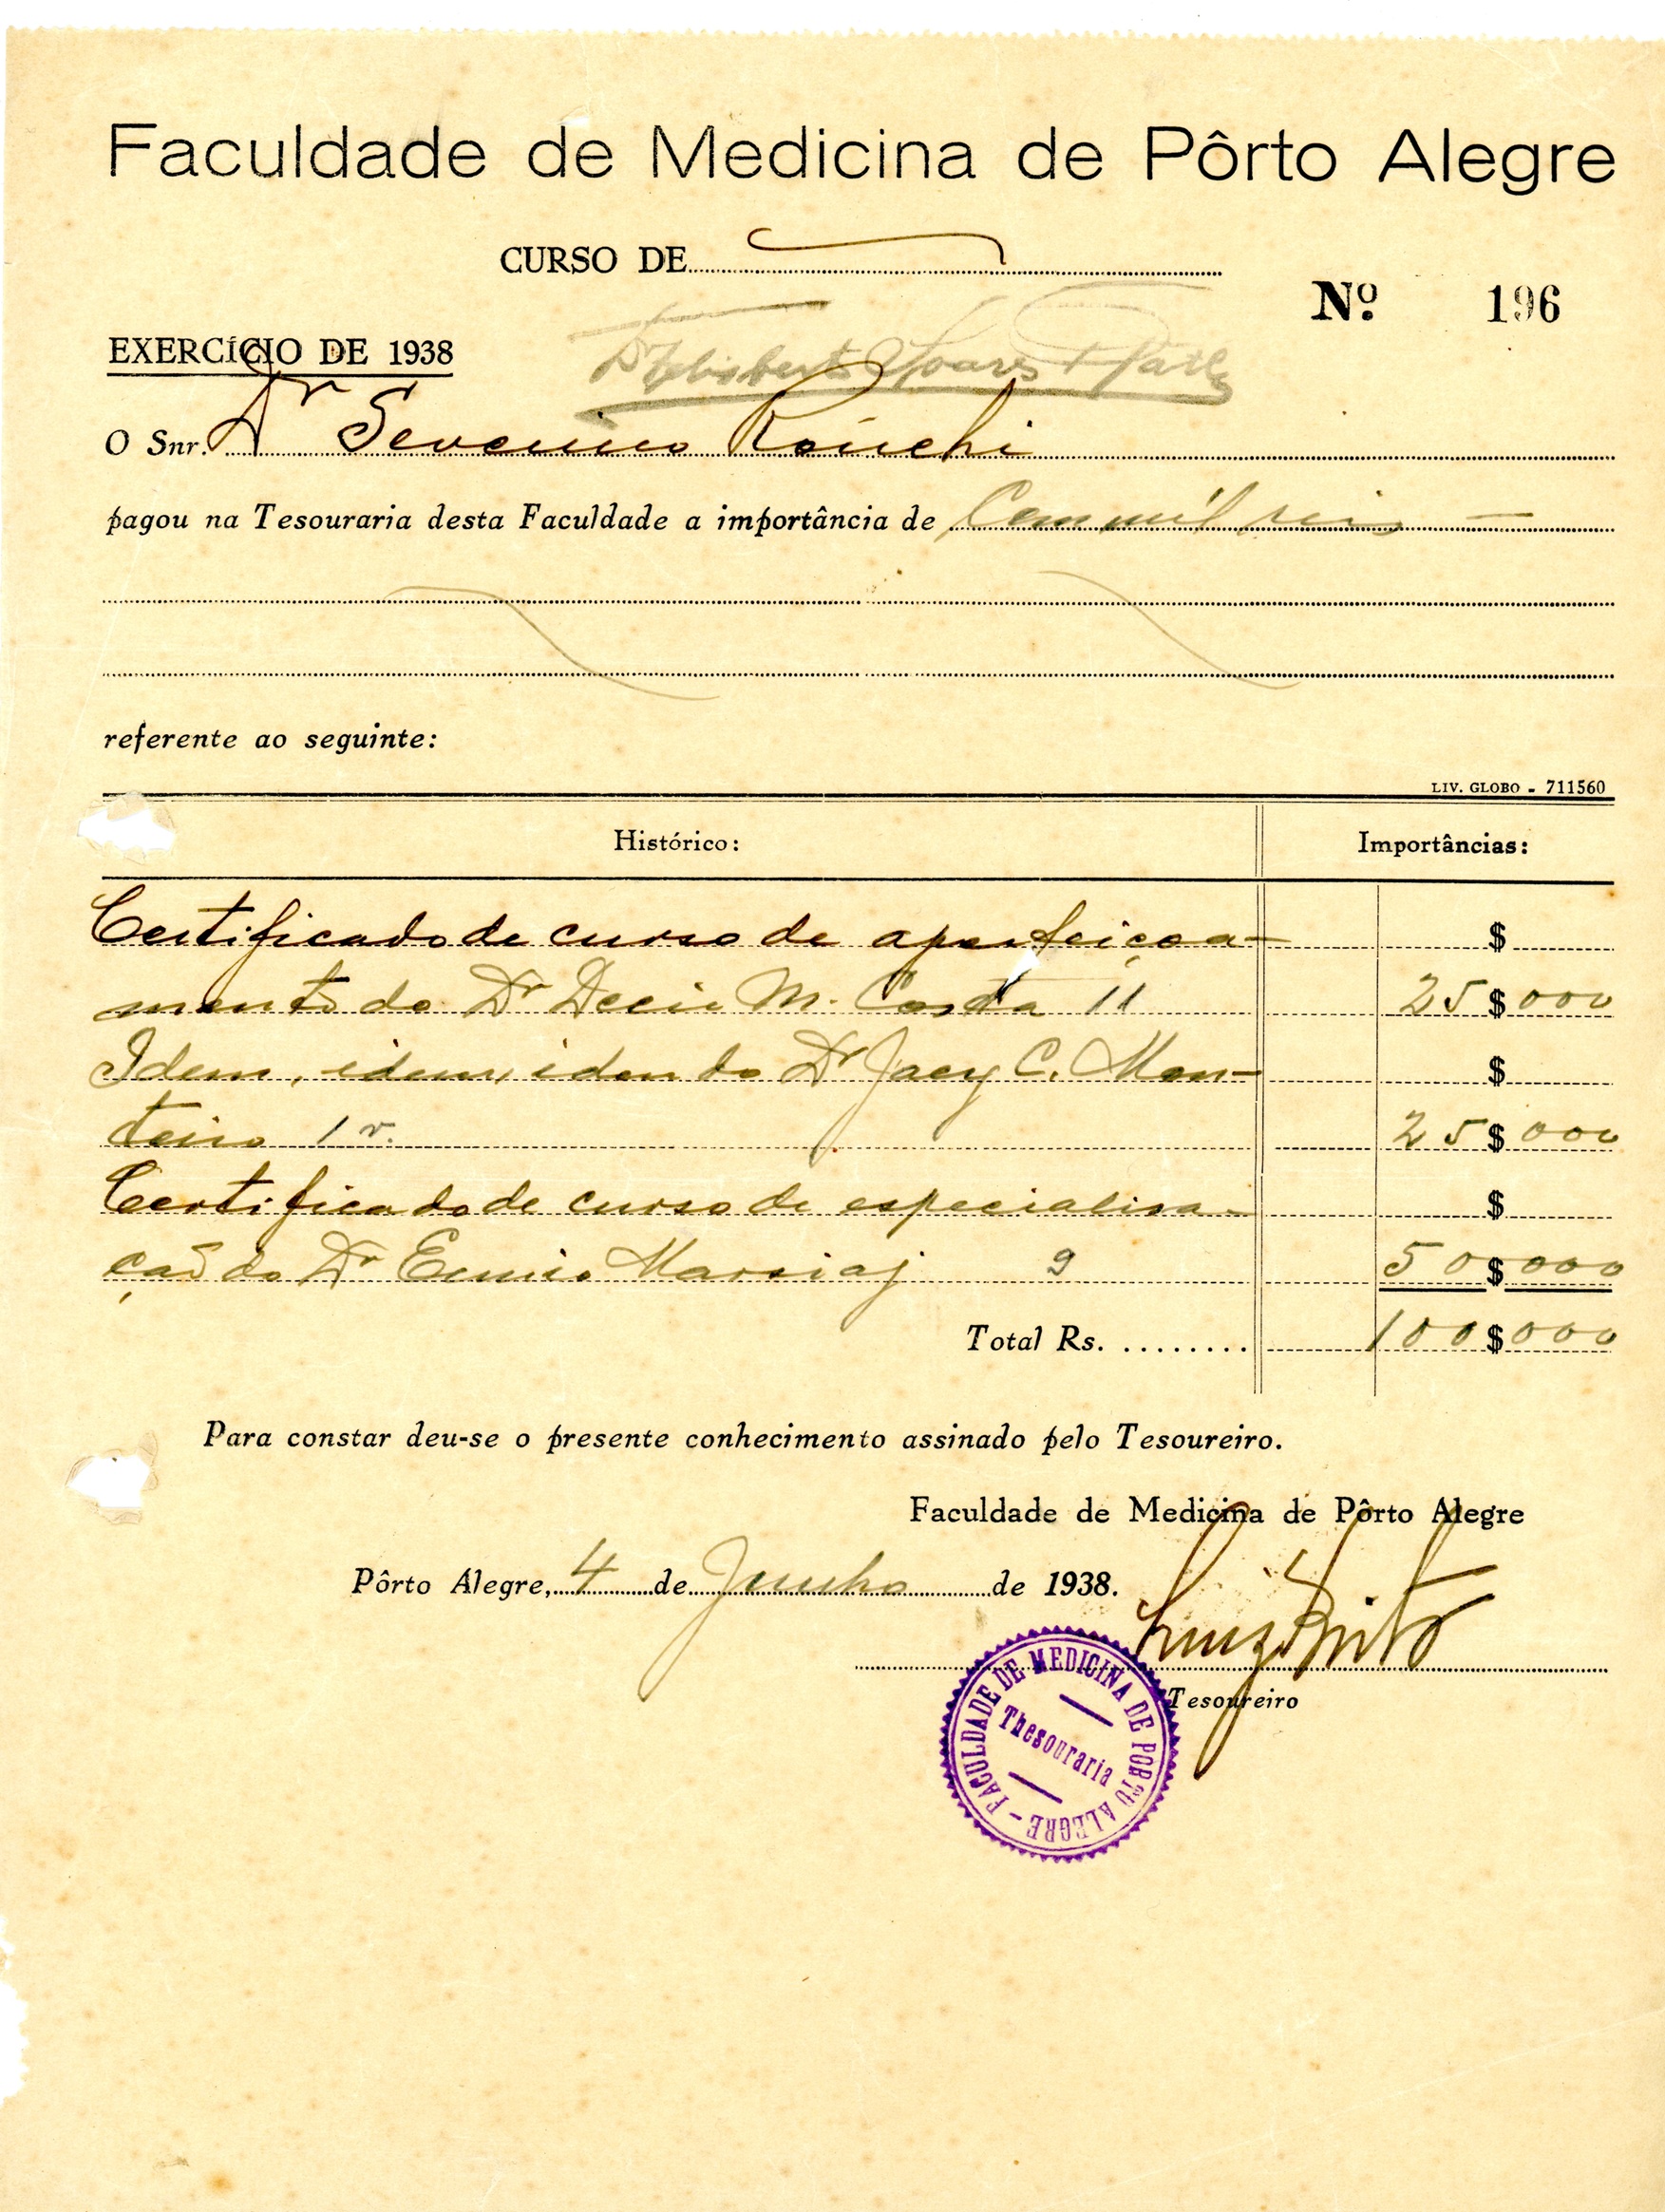 Faculdade de Medicina de Pôrto Alegre
CURSO DE
Nº 196
EXERCÍCIO DE 1938
O Snr. Dr Severino Ronchi
pagou na Tesouraria desta Faculdade a importância de Cem mil reis —
referente ao seguinte:
LIV. GLOBO - 711560
Histórico: Importâncias:
Certificado de curso de aperfeiçoa- $
mento do Dr Decio M. Costa 11 25$000
Idem, idem, idem do Dr Jacy C. Mon- $
teiro 1 v. 25$000
Certificado de curso de especialisa- $
ção do Dr Ennio Marsiaj 9 50$000
Total Rs. ........ 100$000
Para constar deu-se o presente conhecimento assinado pelo Tesoureiro.
Faculdade de Medicina de Pôrto Alegre
Pôrto Alegre, 4 de Junho de 1938.
Luiz Brito
Tesoureiro
FACULDADE DE MEDICINA DE PORTO ALEGRE -
Thesouraria